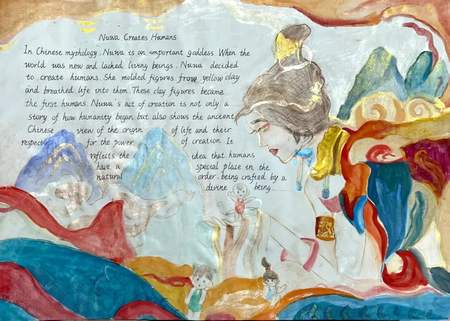 Nuwa Creates Humans
In Chinese mythology, Nuwa is an important goddess. When the
world was new and lacked living beings, Nuwa decided
to create humans. She molded figures from yellow clay
and breathed life into them. These clay figures became
the first humans. Nuwa's act of creation is not only a
story of how humanity began but also shows the ancient
Chinese view of the origin of life and their
respect for the power of creation. It
reflects the idea that humans
have a special place in the
natural order being crafted by a
divine being.